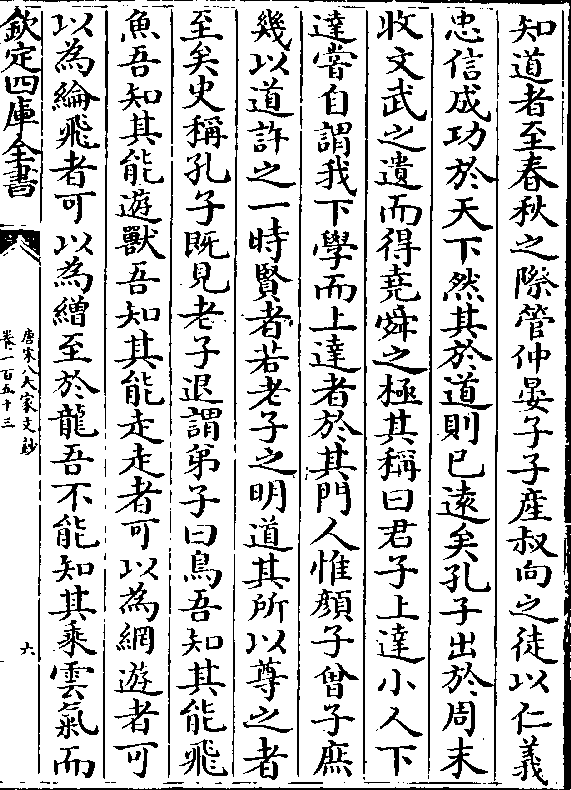 知道者至春秋之際管仲晏子子產叔向之徒以仁義
忠信成功於天下然其於道則已逺矣孔子出於周末
收文武之遺而得堯舜之極其稱曰君子上達小人下
達嘗自謂我下學而上達者於其門人惟顔子曾子庶
幾以道許之一時賢者若老子之明道其所以尊之者
至矣史稱孔子既見老子退謂弟子曰鳥吾知其能飛
魚吾知其能遊獸吾知其能走走者可以為網遊者可
以為綸飛者可以為繒至於龍吾不能知其乘雲氣而
欽定四庫全書
唐宋八大家文鈔
卷一百五十三
六